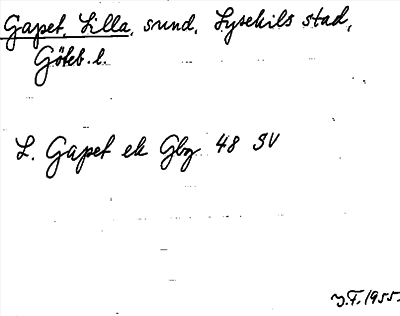 Gapet, Lilla, sund, Lysekils stad,
Göteb. l.
L. Gapet ek Gbg 48 SV
J.F. 1955.